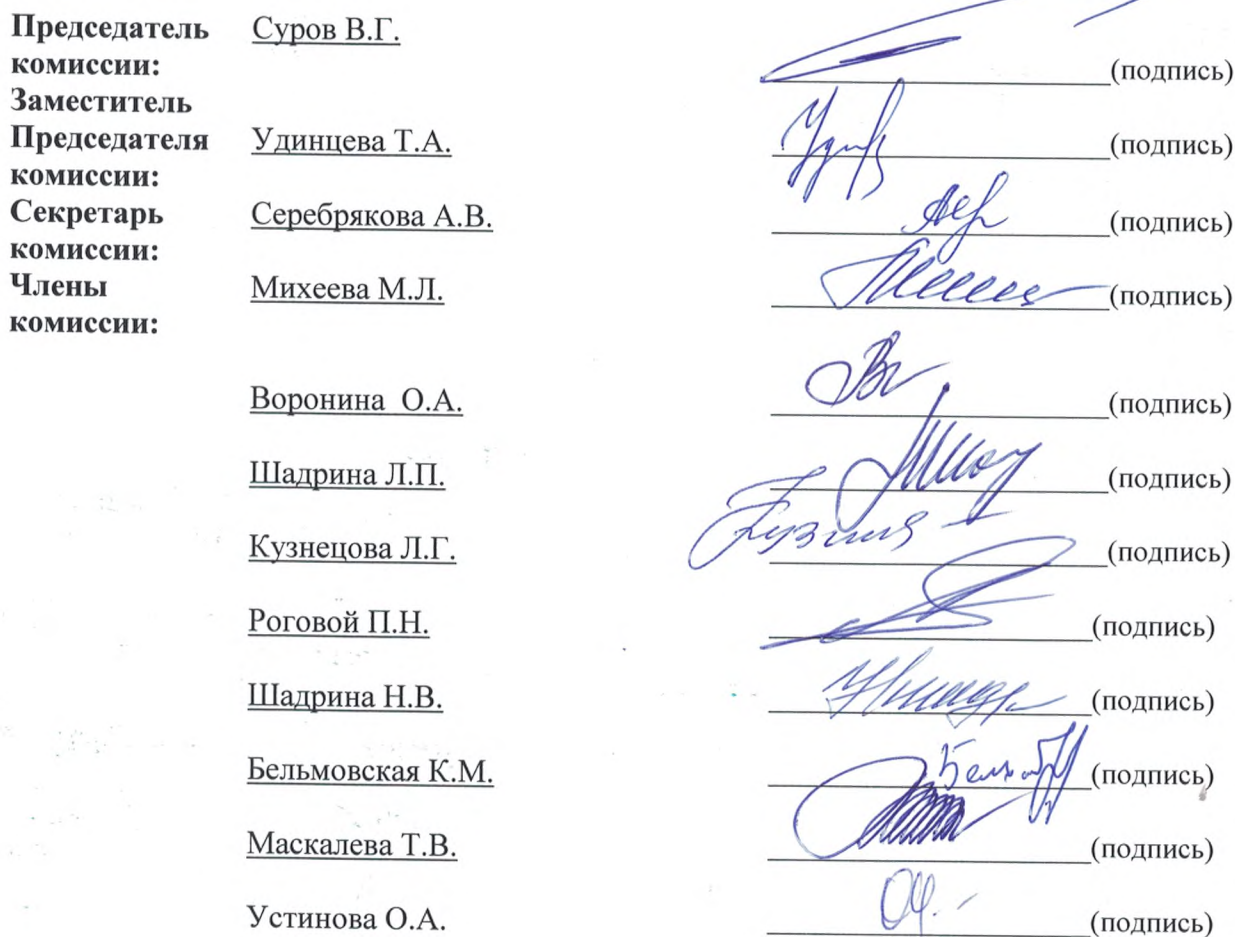 Председатель Суров В.Г.
комиссии: (подпись)
Заместитель
Председателя Удинцева Т.А. (подпись)
комиссии:
Секретарь Серебрякова А.В. (подпись)
комиссии:
Члены Михеева М.Л. (подпись)
комиссии:
Воронина О.А. (подпись)
Шадрина Л.П. (подпись)
Кузнецова Л.Г. (подпись)
Роговой П.Н. (подпись)
Шадрина Н.В. (подпись)
Бельмовская К.М. (подпись)
Маскалева Т.В. (подпись)
Устинова О.А. (подпись)